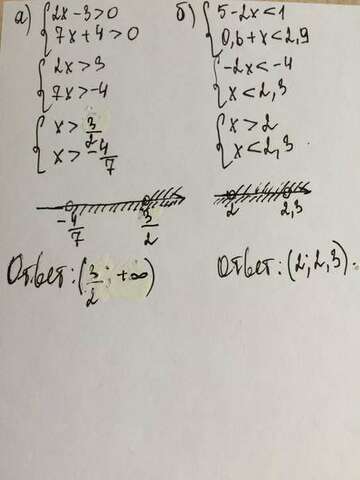 а) { 2x - 3 > 0
7x + 4 > 0
{ 2x > 3
7x > -4
{ x > 3/2
x > -4/7
-4/7 3/2
Ответ: (3/2; +∞)
б) { 5 - 2x < 1
0,6 + x < 2,9
{ -2x < -4
x < 2,3
{ x > 2
x < 2,3
2 2,3
Ответ: (2; 2,3).